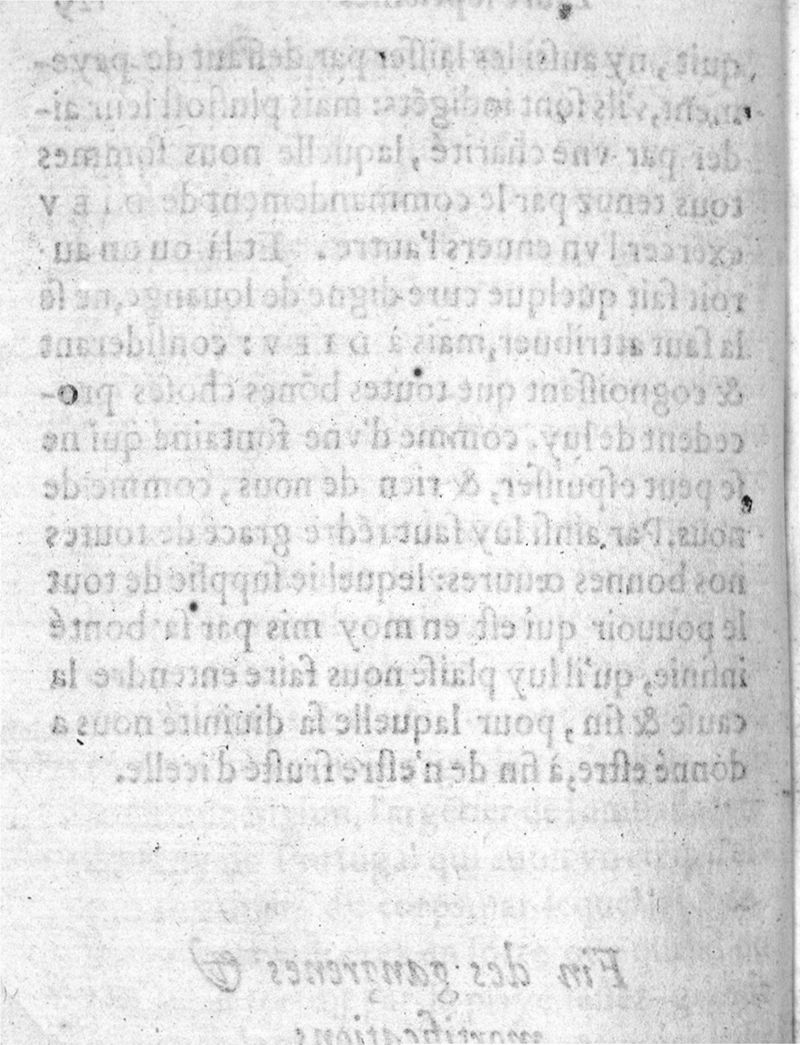 quit, ny aussi les laisser par deffaut de paye-
ment, s'ils sont indigẽts: mais plustost leur ai-
der par vne charité, laquelle nous sommes
tous tenuz par le commandement de DIEV
exercer l'vn enuers l'autre. Et là ou on au
roit fait quelque cure digne de louange, ne se
la faut attribuer, mais à DIEV: considerant
& cognoissant que toutes bõnes choses pro-
cedent de luy. comme d'vne fontaine qui ne
se peut espuisser, & rien de nous, comme de
nous. Par ainsi luy faut rẽdre grace de toutes
nos bonnes œuures: lequel ie supplie de tout
le pouuoir qui est en moy mis par sa bonté
infinie, qu'il luy plaise nous faire entendre la
cause & fin, pour laquelle sa diuinité nous a
donné estre, à fin de n'estre frusté d'icelle.
Fin des gangrenes &
mortifications